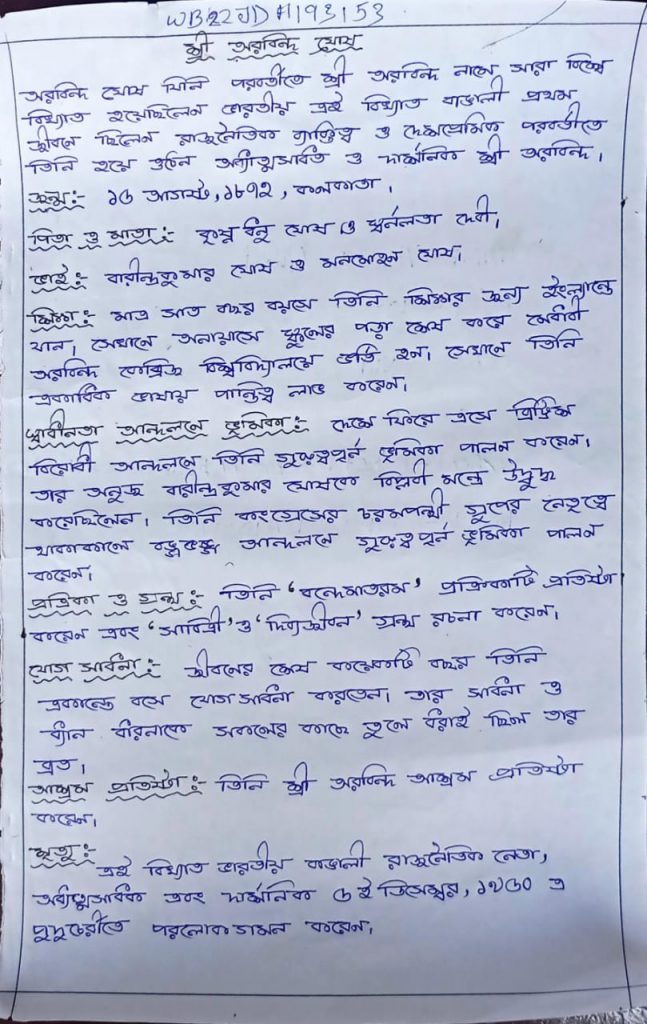 WB22JDH193153
শ্রী অরবিন্দ ঘোষ
অরবিন্দ ঘোষ যিনি পরবর্তীতে শ্রী অরবিন্দ নামে সারা বিশ্বে
বিখ্যাত হয়েছিলেন ভারতীয় এই বিখ্যাত বাঙালী প্রথম
জীবনে ছিলেন রাজনৈতিক ব্যক্তিত্ব ও দেশপ্রেমিক পরবর্তীতে
তিনি হয়ে ওঠেন অধ্যাত্মসাধক ও দার্শনিক শ্রী অরবিন্দ।
জন্ম:- ১৫ আগস্ট, ১৮৭২, কলকাতা।
পিতা ও মাতা:- কৃষ্ণ ধনু ঘোষ ও স্বর্নলতা দেবী।
ভাই:- বারীন্দ্রকুমার ঘোষ ও মনমোহন ঘোষ।
শিক্ষা: মাত্র সাত বছর বয়সে তিনি শিক্ষার জন্য ইংল্যান্ডে
যান। সেখানে অনায়াসে স্কুলের পড়া শেষ করে মেধাবী
অরবিন্দ কেমব্রিজ বিশ্ববিদ্যালয়ে ভর্তি হন। সেখানে তিনি
একাধিক ভাষায় পান্ডিত্ব লাভ করেন।
স্বাধীনতা আন্দলনে ভূমিকা:- দেশে ফিরে এসে ব্রিটিশ
বিরোধী আন্দলনে তিনি গুরুত্বপূর্ন ভূমিকা পালন করেন।
তার অনুজ বারীন্দ্রকুমার ঘোষকে বিপ্লবী মন্ত্রে উদ্বুদ্ধ
করেছিলেন। তিনি কংগ্রেসের চরমপন্থী গ্রুপের নেতৃত্বে
থাকাকালে বঙ্গভঙ্গ আন্দলনে গুরুত্বপূর্ন ভূমিকা পালন
করেন।
পত্রিকা ও গ্রন্থ:- তিনি 'বন্দেমাতরম' পত্রিকাটি প্রতিষ্টা
করেন এবং 'সাবিত্রী' ও 'দিব্যজীবন' গ্রন্থ রচনা করেন।
যোগ সাধনা:- জীবনের শেষ কয়েকটি বছর তিনি
একান্তে বসে যোগ সাধনা করতেন। তার সাধনা ও
ধ্যান ধারনাকে সকলের কাছে তুলে ধরাই ছিল তার
ব্রত।
আশ্রম প্রতিষ্টা:- তিনি শ্রী অরবিন্দ আশ্রম প্রতিষ্টা
করেন।
মৃত্যু:-
এই বিখ্যাত ভারতীয় বাঙালী রাজনৈতিক নেতা,
অধ্যাত্মসাধক এবং দার্শনিক ৫ ই ডিসেম্বর, ১৯৫০ এ
পুদুচেরীতে পরলোক গমন করেন।